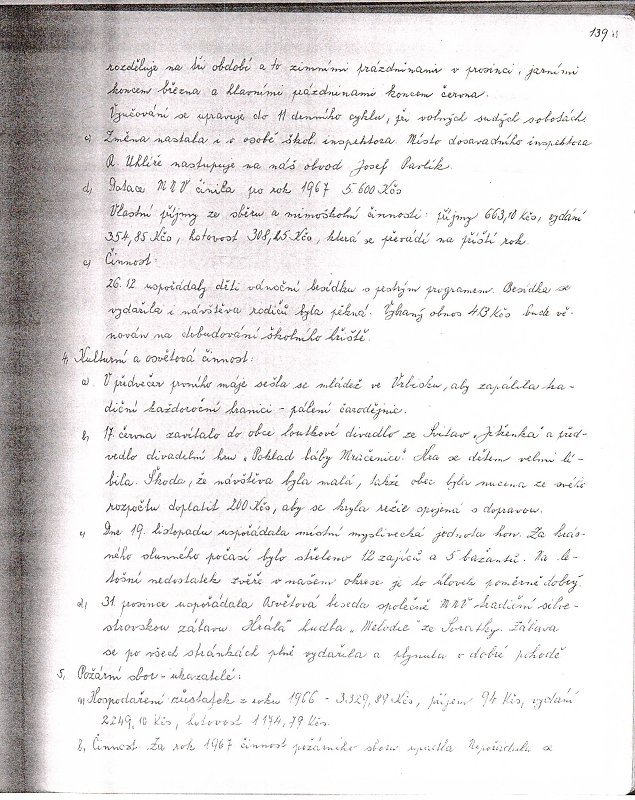 139
rozděluje na tři období a to zimními prázdninami v prosinci, jarními
koncem března a hlavními prázdninami koncem června.
Vyučování se upravuje do 11 denního cyklu, při volných sudých sobotách.
c, Změna nastala i v osobě škol. inspektora. Místo dosavadního inspektora
R. Uhlíře nastupuje na náš obvod Josef Pavlík.
d, Dotace MNV činila pro rok 1967 5 600 Kčs
Vlastní příjmy ze sběru a mimoškolní činnosti: příjmy 663,10 Kčs, vydání
354,85 Kčs, hotovost 308,25 Kčs, která se převádí na příští rok.
e, Činnost:
26. 12. uspořádaly děti vánoční besídku s pestrým programem. Besídka se
vydařila i návštěva rodičů byla pěkná. Vybraný obnos 413 Kčs bude vě-
nován na dobudování školního hřiště.
4, Kulturní a osvětová činnost:
a, V předvečer prvního máje sešla se mládež ve Vrbisku, aby zapálila tra-
diční každoroční hranici - pálení čarodějnic.
b, 17. června zavítalo do obce loutkové divadlo ze Svitav „Jitřenka" a před-
vedlo divadelní hru „Poklad báby Mračenice". Hra se dětem velmi lí-
bila. Škoda, že návštěva byla malá, takže obec byla nucena ze svého
rozpočtu doplatit 200 Kčs, aby se kryla režie spojená s dopravou.
c, Dne 19. listopadu uspořádala místní myslivecká jednota hon. Za krás-
ného slunného počasí bylo střeleno 12 zajíců a 5 bažantů. Na le-
tošní nedostatek zvěře v našem okrese je to úlovek poměrně dobrý.
d, 31. prosince uspořádala Osvětová beseda společně MNV tradiční silve-
strovskou zábavu. Hrála hudba „Melodie" ze Svratky. Zábava
se po všech stránkách plně vydařila a plynula v dobré pohodě
5, Požární sbor - ukazatelé:
a, Hospodaření zůstatek z roku 1966 - 3.329,89 Kčs, příjem 94 Kčs, vydání
2249,10 Kčs, hotovost 1174,79 Kčs.
b, Činnost. Za rok 1967 činnost požárního sboru upadla. Nepořádala se